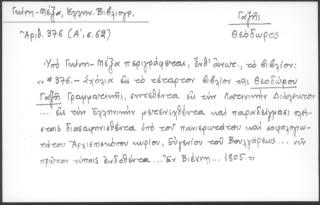 Γκίνη - Μέξα, Ἑλλην. Βιβλιογρ.
Ἀριθ. 376 (Α', σ. 62)
Γαζῆς
Θεόδωρος
Ὑπὸ Γκίνη - Μέξα περιγράφεται, ἔνθ' ἀνωτ., τὸ βιβλίον:
« *376.- Σχόλια εἰς τὸ τέταρτον βιβλίον τῆς Θεοδώρου
Γαζῆ Γραμματικῆς, συντεθέντα εἰς τὴν Λατινικὴν Διάλεκτον
.... εἰς τὴν Ἑλληνικὴν μετενεχθέντα καὶ παραδείγμασι πλεί-
στοις διασαφηνισθέντα ὑπὸ τοῦ πανιερωτάτου καὶ σοφολογιω-
τάτου Ἀρχιεπισκόπου κυρίου, Εὐγενίου τοῦ Βουλγάρεως ... νῦν
πρῶτον τύποις ἐκδοθέντα ... Ἐν Βιέννῃ ... 1805.»